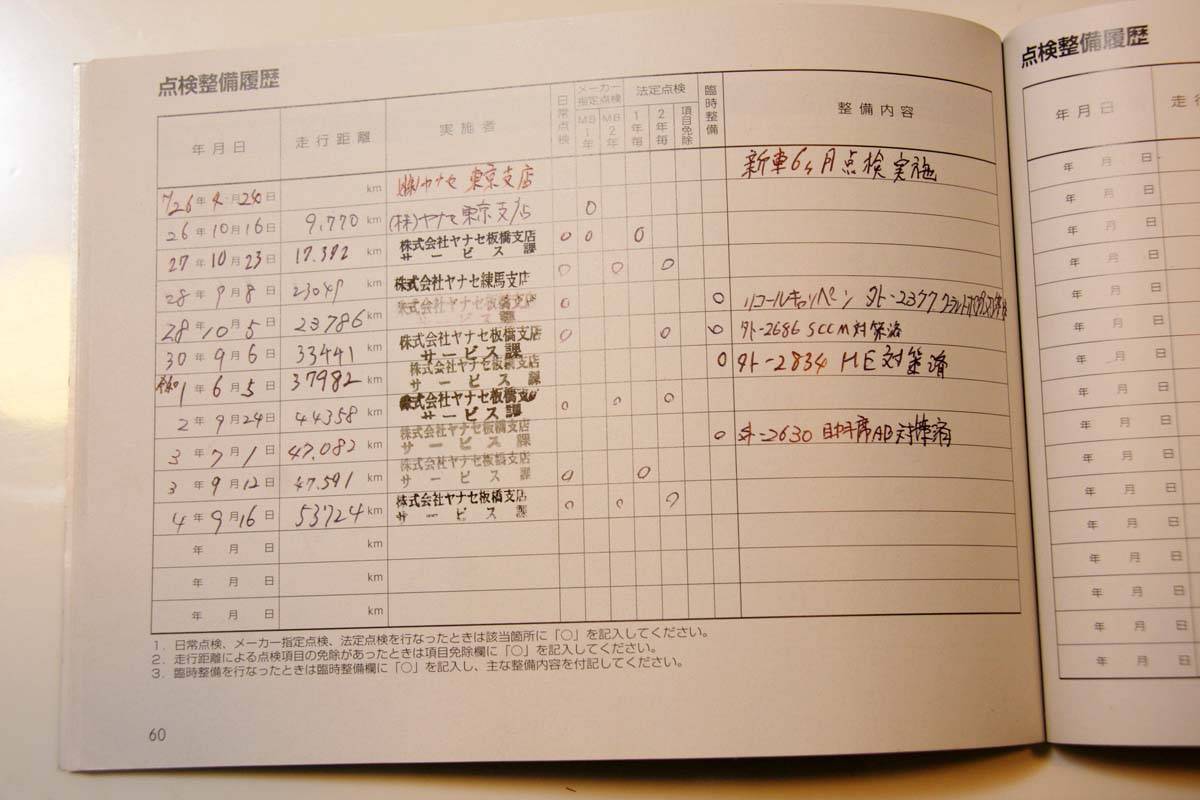 点検整備履歴
年月日 走行距離 実施者 日常点検 メーカー指定点検 MB1年 MB2年 法定点検 1年毎 2年毎 項目免除 臨時整備 整備内容
26年4月20日 km (株)ヤナセ 東京支店 新車6ヶ月点検実施
26年10月16日 9,770 km (株)ヤナセ東京支店 ○
27年10月23日 17,392 km 株式会社ヤナセ板橋支店 サービス課 ○ ○ ○
28年9月8日 23049 km 株式会社ヤナセ練馬支店 ○ ○ ○
28年10月5日 23786 km 株式会社ヤナセ板橋支店 課 ○ ○ リコールキャンペーン 外-2377
30年9月6日 33441 km 株式会社ヤナセ板橋支店 サービス課 ○ ○ ○ 外-2686 SCCM対策済
令和1年6月5日 37982 km 株式会社ヤナセ板橋支店 サービス課 ○ 外-2834 HE対策済
2年9月24日 44358 km 株式会社ヤナセ板橋支店 サービス課 ○ ○ ○
3年7月1日 47,082 km 株式会社ヤナセ板橋支店 サービス課 ○ 外-2630 助手席AB対策済
3年9月12日 47,591 km 株式会社ヤナセ板橋支店 サービス課 ○ ○
4年9月16日 53724 km 株式会社ヤナセ板橋支店 サービス課 ○ ○ ○
年 月 日 km
年 月 日 km
年 月 日 km
1. 日常点検、メーカー指定点検、法定点検を行なったときは該当箇所に「○」を記入してください。
2. 走行距離による点検項目の免除があったときは項目免除欄に「○」を記入してください。
3. 臨時整備を行なったときは臨時整備欄に「○」を記入し、主な整備内容を付記してください。
60
点検整備履歴
年月日 走
年 月 日
年 月 日
年 月 日
年 月 日
年 月 日
年 月 日
年 月 日
年 月 日
年 月 日
年 月 日
年 月 日
年 月 日
年 月 日
年 月 日
年 月 日
年 月 日